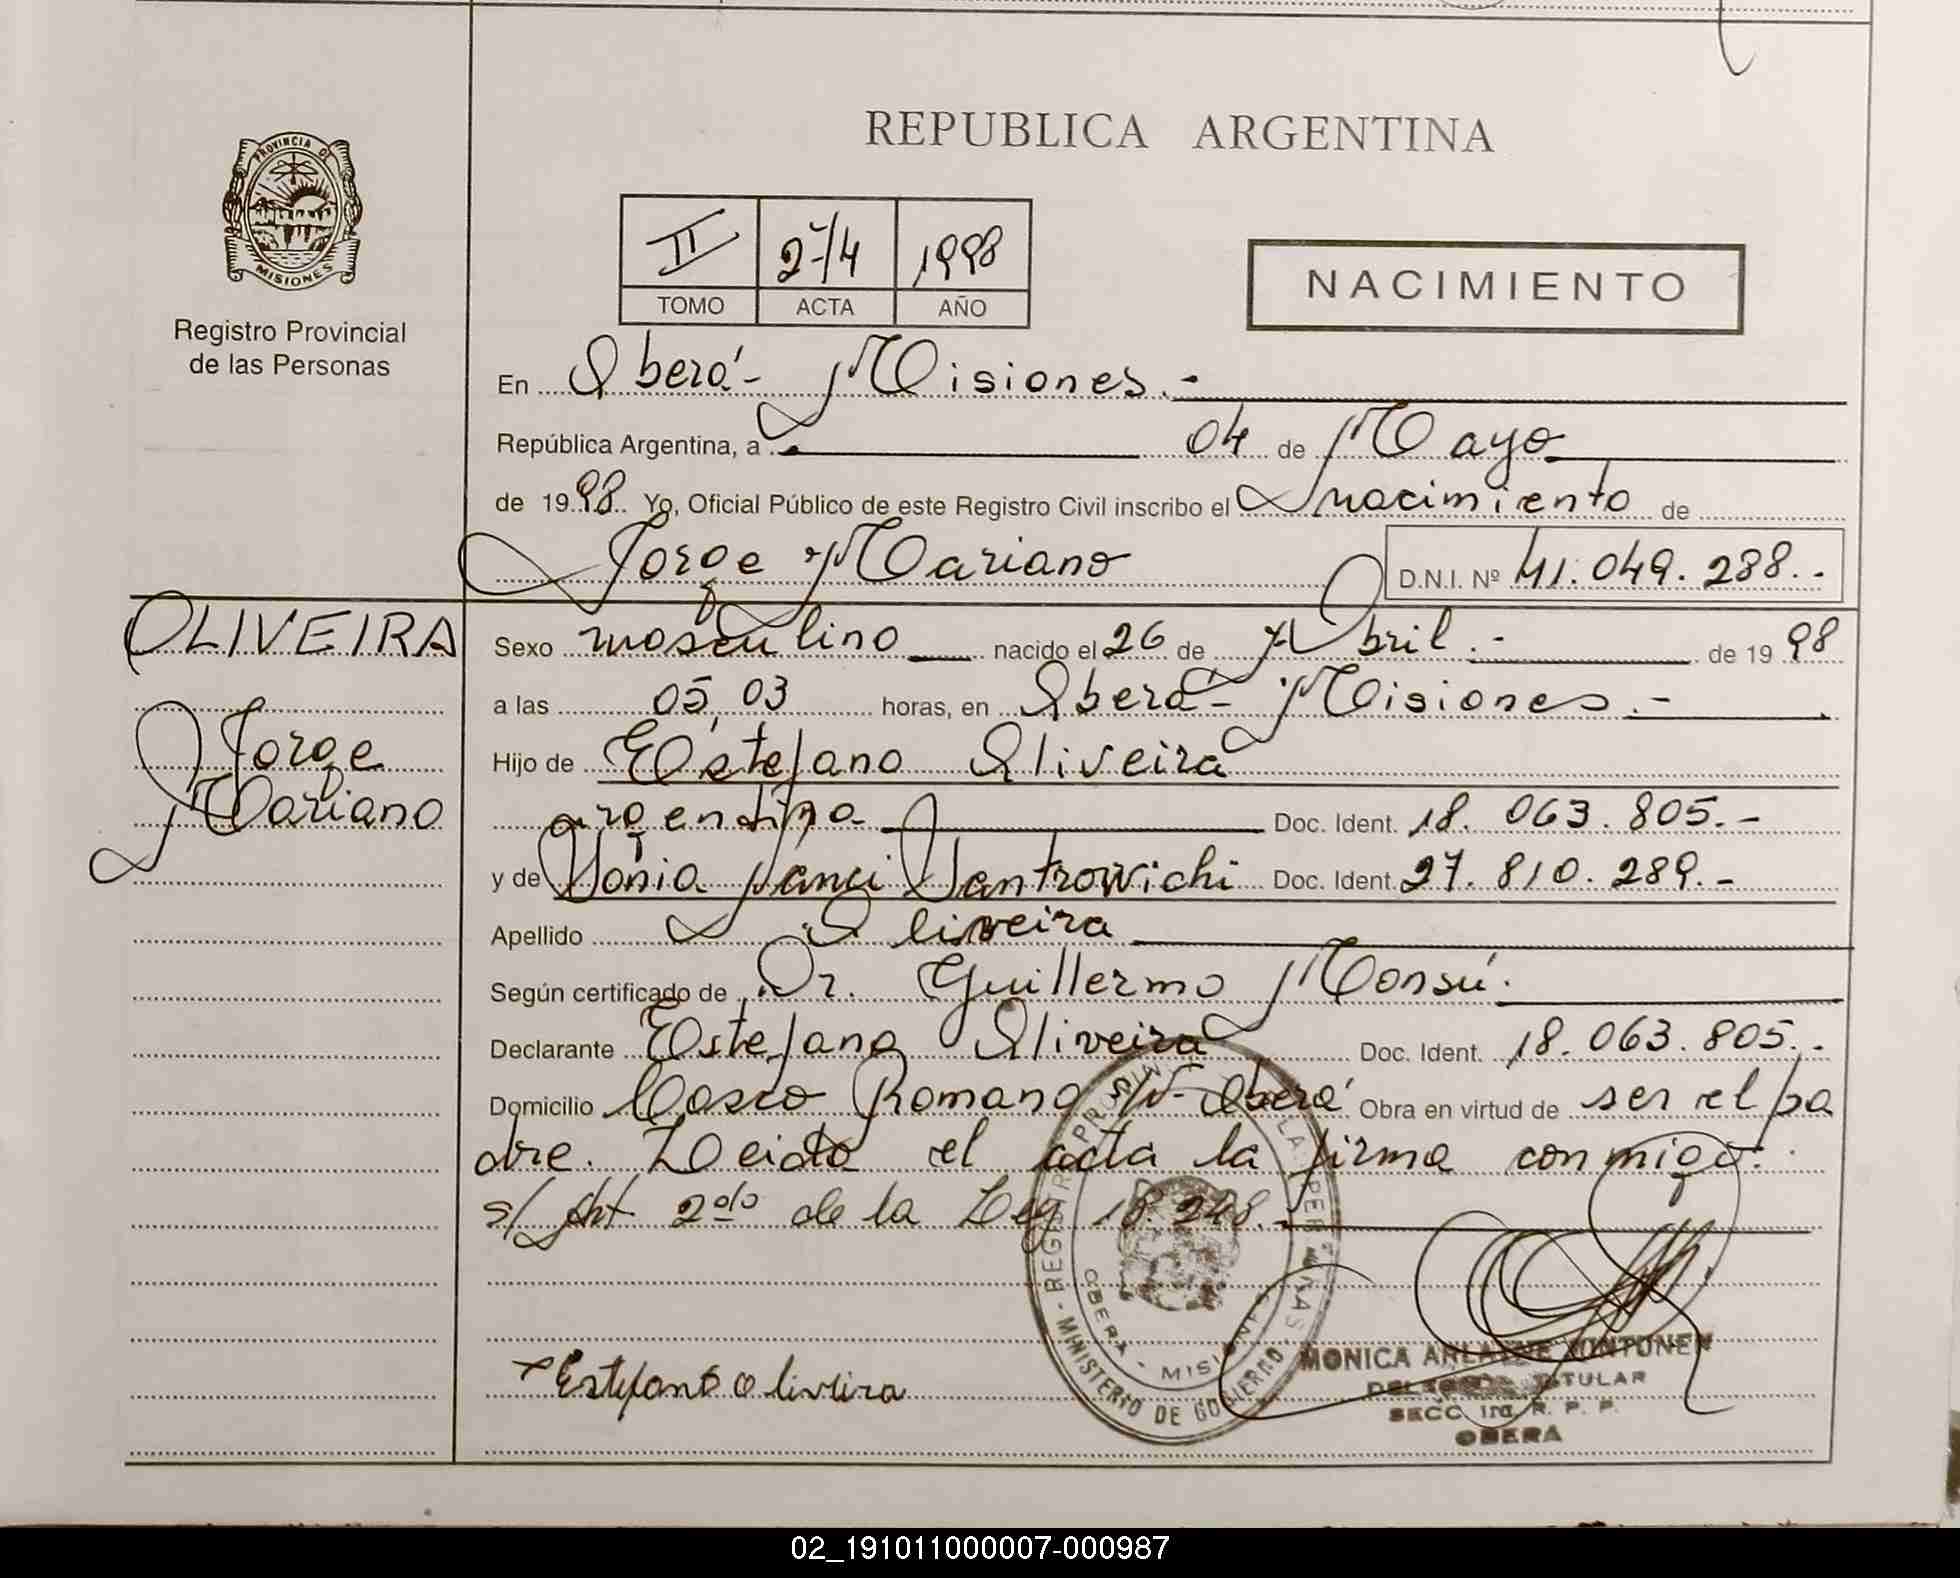 PROVINCIA DE
MISIONES
Registro Provincial
de las Personas
REPUBLICA ARGENTINA
II 274 1998
TOMO ACTA AÑO
NACIMIENTO
En Oberá - Misiones.-
República Argentina, a 04 de Mayo
de 1998 Yo, Oficial Público de este Registro Civil inscribo el nacimiento de
Jorge Mariano D.N.I. Nº 41.049.288.-
OLIVEIRA
Jorge
Mariano
Sexo masculino nacido el 26 de Abril.- de 1998
a las 05,03 horas, en Oberá - Misiones.-
Hijo de Estefano Oliveira
argentina Doc. Ident. 18.063.805.-
y de Sonia Nanci Santrowichi Doc. Ident. 27.810.289.-
Apellido Oliveira
Según certificado de Dr. Guillermo Monsú.
Declarante Estefano Oliveira Doc. Ident. 18.063.805.-
Domicilio Casco Romano s/Nº Oberá Obra en virtud de ser el pa
dre. Leida el acta la firma conmigo.
s/ Art 2do de la Ley 18.248.-
REGISTRO PROVINCIAL DE LAS PERSONAS
MINISTERIO DE GOBIERNO
OBERA - MISIONES
Estefano Oliveira
MONICA
TITULAR
SECC. 1ra. R. P. P.
OBERA
02_191011000007-000987